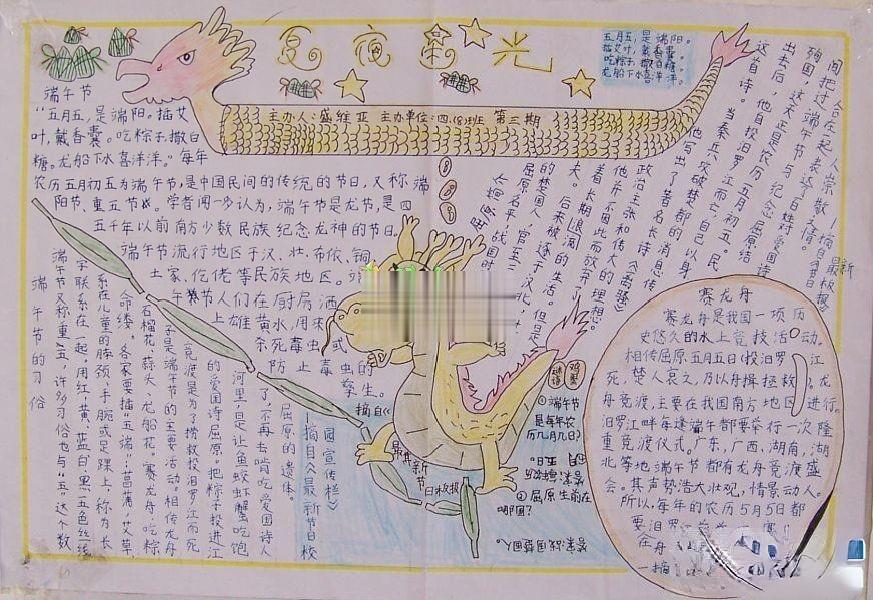 夏夜星光
五月五,是端阳。
插艾叶,戴香囊。
吃粽子,撒白糖。
龙船下水喜洋洋。
主办人:盛维亚 主办单位:四.(8)班 第三期
端午节
“五月五,是端阳。插艾
叶,戴香囊。吃粽子,撒白
糖。龙船下水喜洋洋。”每年
农历五月初五为端午节,是中国民间的传统的节日,又称端
阳节、重五节
学者闻一多认为,端午节是龙节,是四
五千年以前南方少数民族纪念龙神的节日。
端午节流行地区于汉、壮、布依、侗
土家、仡佬等民族地区。
午节人们在厨房洒
上雄黄水,用来
杀死毒虫或
防止毒虫的
孳生。
摘自《
最新节日
校园宣传栏》
端午节的习俗
端午节又称重五,许多习俗也与“五”这个数
字联系在一起。用红、黄、蓝、白、黑五色丝线
系在儿童的脖颈、手腕或足踝上,称为长
命缕。各家要插“五端”:菖蒲、艾草、
石榴花、蒜头、龙船花。赛龙舟、吃粽
子是端午节的主要活动。相传龙舟
竞渡是为了捞救投汨罗江而死
的爱国诗屈原。把粽子投进江
河里,是让鱼蛟虾蟹吃饱
了,不再去啃吃爱国诗人
屈原的遗体。
摘自《最新节日校
园宣传栏》
屈原
(屈原名平,战国时
的楚国人,官至三
夫。后来被逐于汉北,
着长期浪洞的生活。但是
他并不因此而放弃了
政治主张和伟大的理想。
他写出了著名长诗《离骚》
这首诗。当秦兵攻破楚都的消息传
出去后,他自投汨罗江而亡,自己以身
殉国,这天正是农历五月初五。民
间把过端午节与纪念爱国诗
人屈原结合在一起,表达了百姓对
崇敬之情。
谜语
①端午节
是每年农
历几月几日?
②屈原生前在
哪国?
赛龙舟
赛龙舟是我国一项历
史悠久的水上竞技活动。
相传屈原五月五日投汨罗江
死,楚人哀之,乃以舟楫拯救。龙
舟竞渡,主要在我国南方地区进行。
汨罗江畔每逢端午都要举行一次隆
重竞渡仪式。广东,广西,湖南,湖
北等地端午节都有龙舟竞渡盛
会。其声势浩大壮观,情景动人。
所以,每年的农历5月5日都
要汨罗江
在舟
一摘